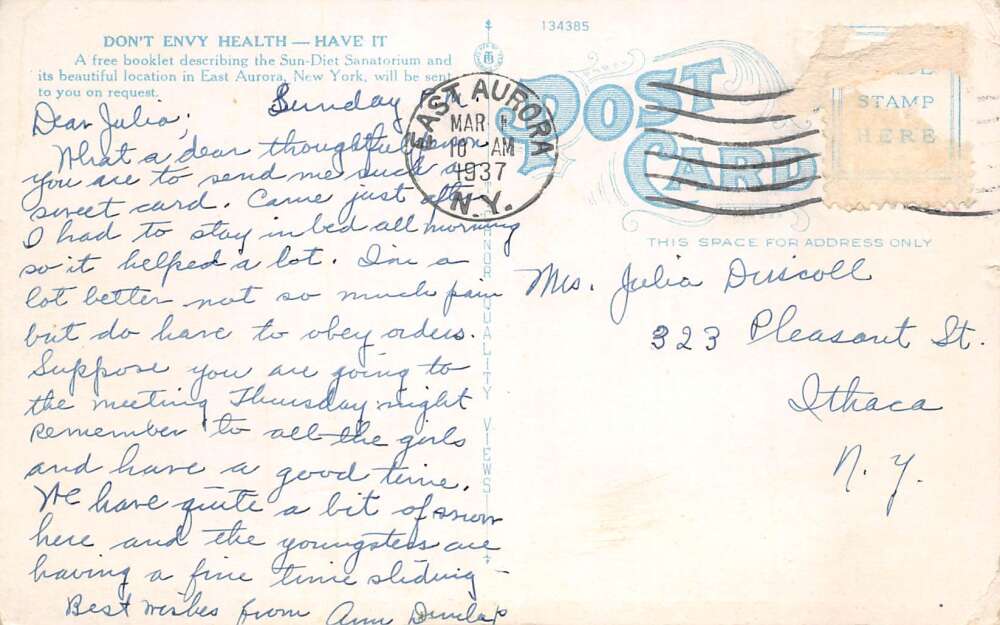 DON'T ENVY HEALTH — HAVE IT
A free booklet describing the Sun-Diet Sanatorium and
its beautiful location in East Aurora, New York, will be sent
to you on request.
Sunday
Dear Julia;
What a dear thoughtful
you are to send me such a
sweet card. Came just after
I had to stay in bed all morning
so it helped a lot. I'm a
lot better not so much pain
but do have to obey orders.
Suppose you are going to
the meeting Thursday night
remember to all the girls
and have a good time.
We have quite a bit of snow
here and the youngsters are
having a fine time sliding —
Best wishes from Ann Dunlap
134385
POST CARD
EAST AURORA
MAR
AM
1937
N.Y.
STAMP
HERE
THIS SPACE FOR ADDRESS ONLY
QUALITY VIEWS
Mrs. Julia Driscoll
323 Pleasant St.
Ithaca
N. Y.